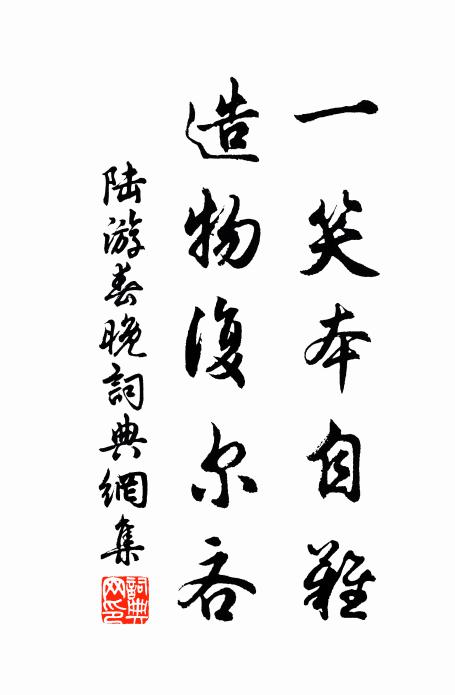 一笑本自難
造物復尔吝
陆游春晚詞典網集
詞典网印